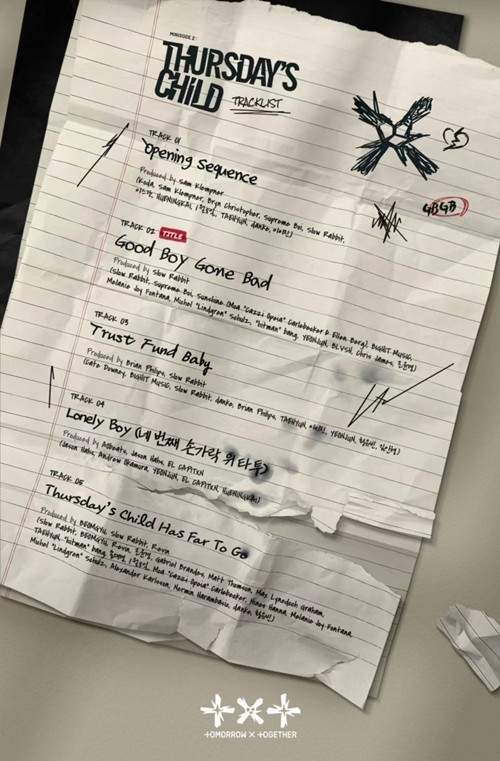 MINISODE 2:
THURSDAY'S
CHILD
TRACKLIST
GBGB
TRACK 01
Opening Sequence
Produced by Sam Klempner
(Koda, Sam Klempner, Bryn Christopher, Supreme Boi, Slow Rabbit,
이스란, HUENINGKAI, TAEHYUN, danke,
TRACK 02 TITLE
Good Boy Gone Bad
Produced by Slow Rabbit
(Slow Rabbit, Supreme Boi, Sunshine (Moa "Cazzi Opeia" Carlebecker & Ellen Berg), BIGHIT MUSIC,
Melanie Joy Fontana, Michel "Lindgren" Schulz, "hitman" bang, YEONJUN, BLVSH, Chris James,
TRACK 03
Trust Fund Baby
Produced by Brian Phillips, Slow Rabbit
(Cato Downey, BIGHIT MUSIC, Slow Rabbit, danke, Brian Phillips, TAEHYUN, YEONJUN,
TRACK 04
Lonely Boy (네 번째 손가락 위 타투)
Produced by Ashtrate, Jason Hahs, EL CAPITXN
(Jason Hahs, Andrew Okamura, YEONJUN, EL CAPITXN, HUENINGKAI)
TRACK 05
Thursday's Child Has Far To Go
Produced by BEOMGYU, Slow Rabbit, Revin
(Slow Rabbit, BEOMGYU, Revin, Gabriel Brandes, Matt Thomson, Max Lynedoch Graham,
TAEHYUN, "hitman" bang, Moa "Cazzi Opeia" Carlebecker, Ninos Hanna, Melanie Joy Fontana,
Michel "Lindgren" Schulz, Alexander Karlsson, Nermin Harambasic, danke,
TOMORROW X TOGETHER